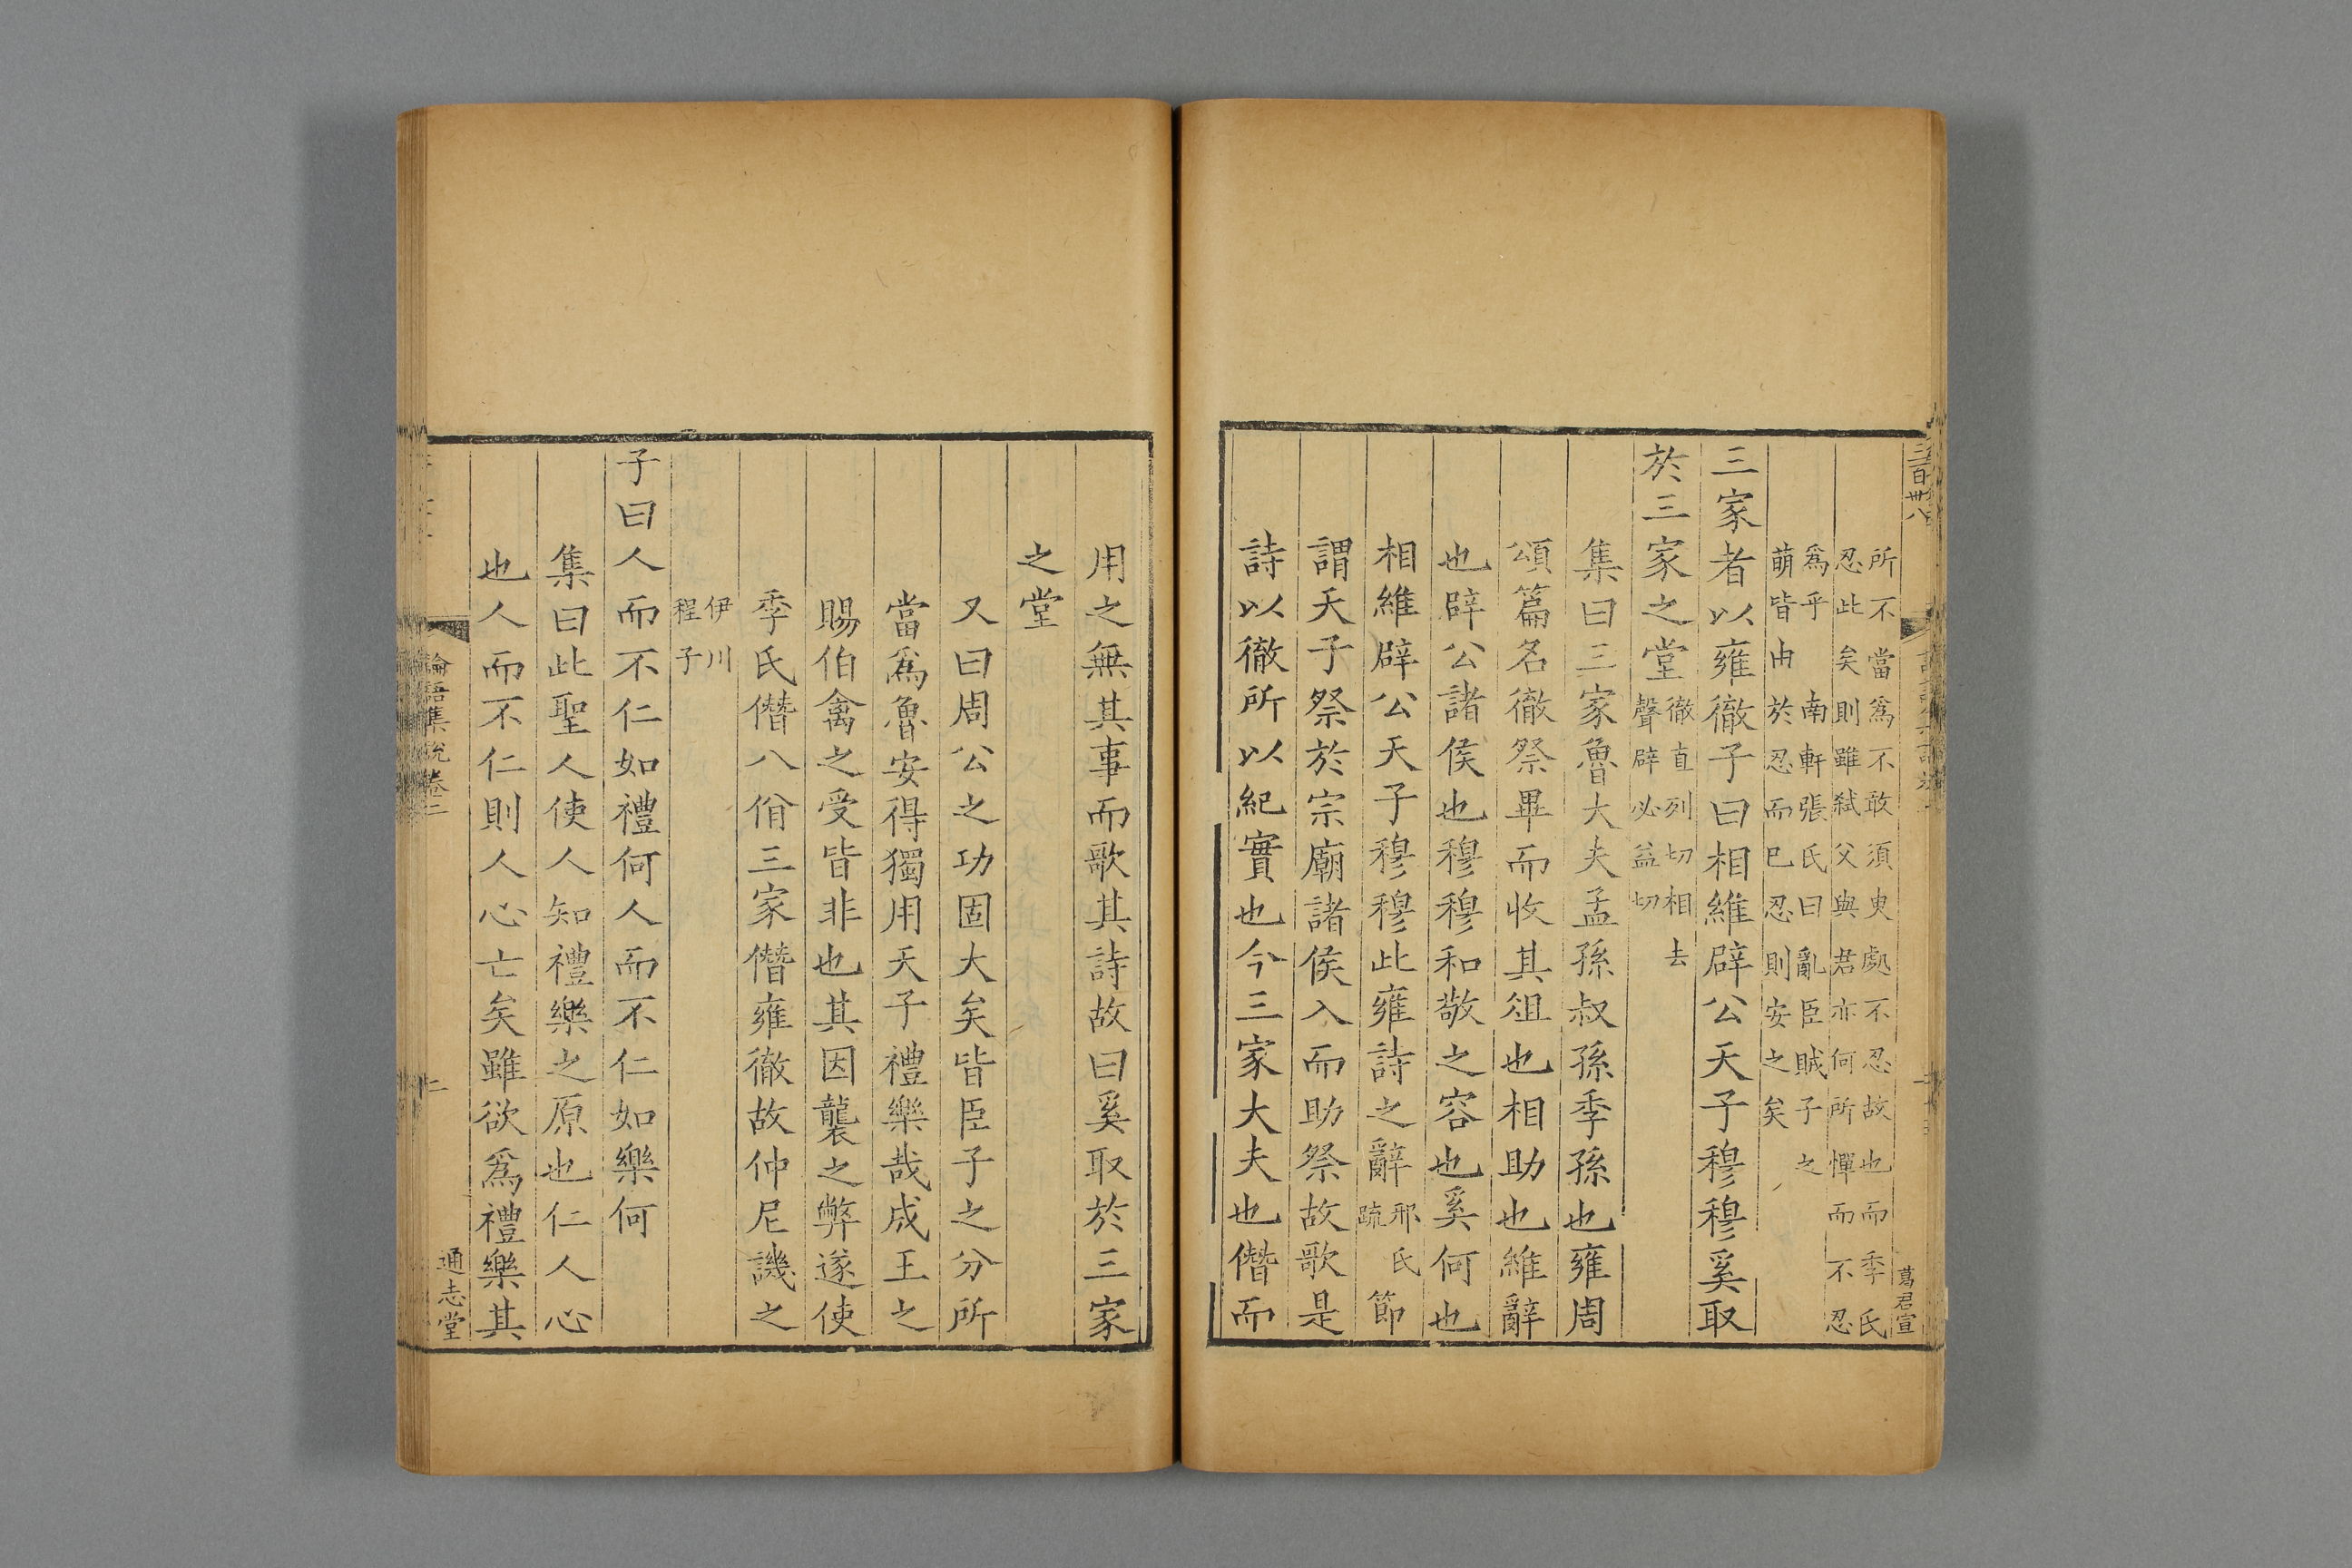 三百卅八
葛君宣
所不當爲不敢須臾處不忍故也而季氏
忍此矣則雖弑父與君亦何所憚而不忍
爲乎 南軒張氏曰亂臣賊子之
萌皆由於忍而已忍則安之矣
三家者以雍徹子曰相維辟公天子穆穆奚取
於三家之堂徹直列切相去
聲辟必益切
集曰三家魯大夫孟孫叔孫季孫也雍周
頌篇名徹祭畢而收其俎也相助也維辭
也辟公諸侯也穆穆和敬之容也奚何也
相維辟公天子穆穆此雍詩之辭邢氏
疏 節
謂天子祭於宗廟諸侯入而助祭故歌是
詩以徹所以紀實也今三家大夫也僭而
用之無其事而歌其詩故曰奚取於三家
之堂
又曰周公之功固大矣皆臣子之分所
當爲魯安得獨用天子禮樂哉成王之
賜伯禽之受皆非也其因襲之弊遂使
季氏僭八佾三家僭雍徹故仲尼譏之
伊川
程子
子曰人而不仁如禮何人而不仁如樂何
集曰此聖人使人知禮樂之原也仁人心
也人而不仁則人心亡矣雖欲爲禮樂其
論語集說卷二
二
通志堂